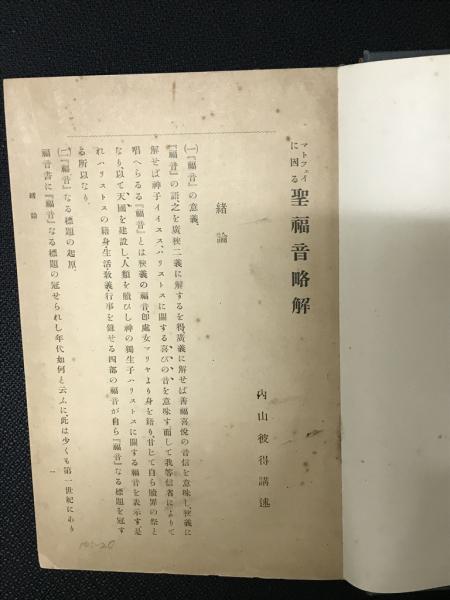 マトフェイに因る 聖福音略解
内山彼得講述
緒論
(一)『福音』の意義、
『福音』の語之を廣狹二義に解するを得、廣義に解せば善福喜悅の音信を意味し、狹義に
解せば神子イイスス、ハリストスに關する喜びの音を意味す而して我等信者によりて
唱へらるる『福音』とは狹義の福音、即處女マリヤより身を藉り甘じて自ら贖罪の祭と
なり、以て天國を建設し、人類を贖ひし神の獨生子ハリストスに關する福音を表示す是
れハリストスの籍身、生活、敎義、行事を錄せる四部の福音が自ら『福音』なる標題を冠す
る所以なり、
(二)『福音』なる標題の起原、
福音書に『福音』なる標題の冠せられし年代如何と云ふに此は少くも第一世紀にあり
緒論
一